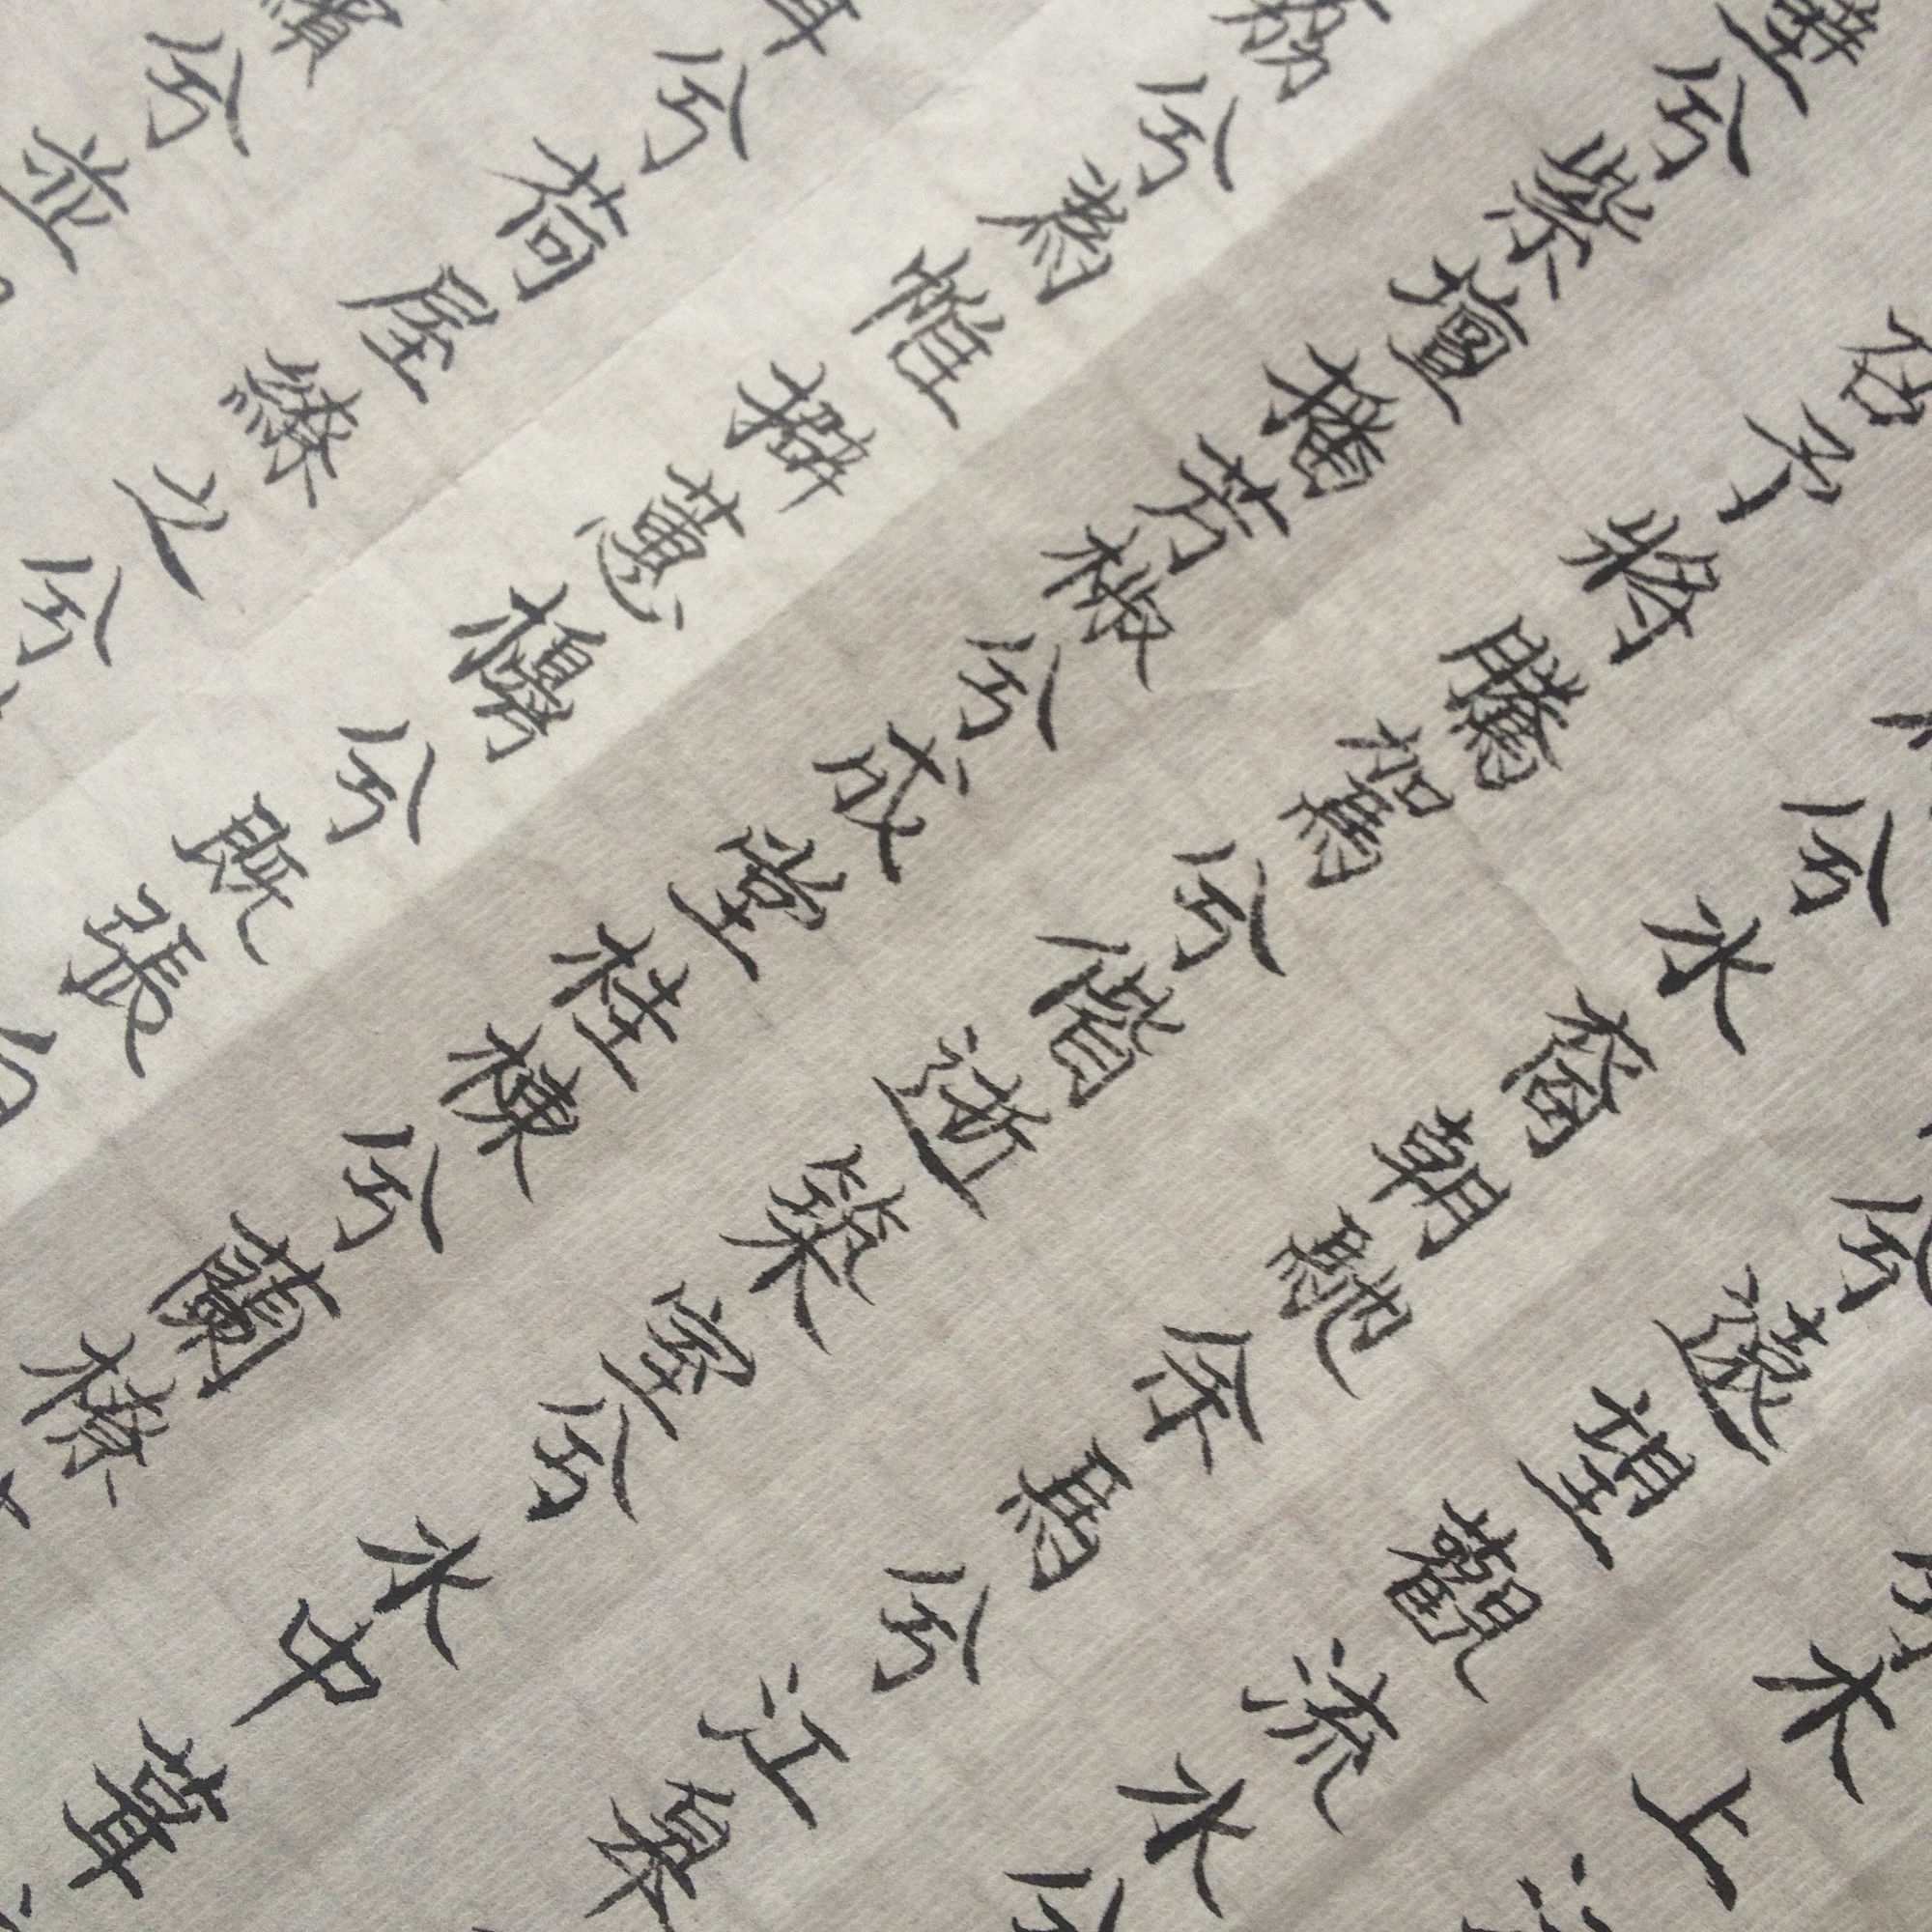 木上
兮遠望觀流水兮
兮水裔朝馳余馬兮江皋
召予將騰駕兮偕逝築室兮水中葺
壁兮紫壇播芳椒兮成堂桂棟兮蘭橑
荔兮爲帷擗蕙櫋兮既張
葺兮荷屋繚之兮
繽兮並